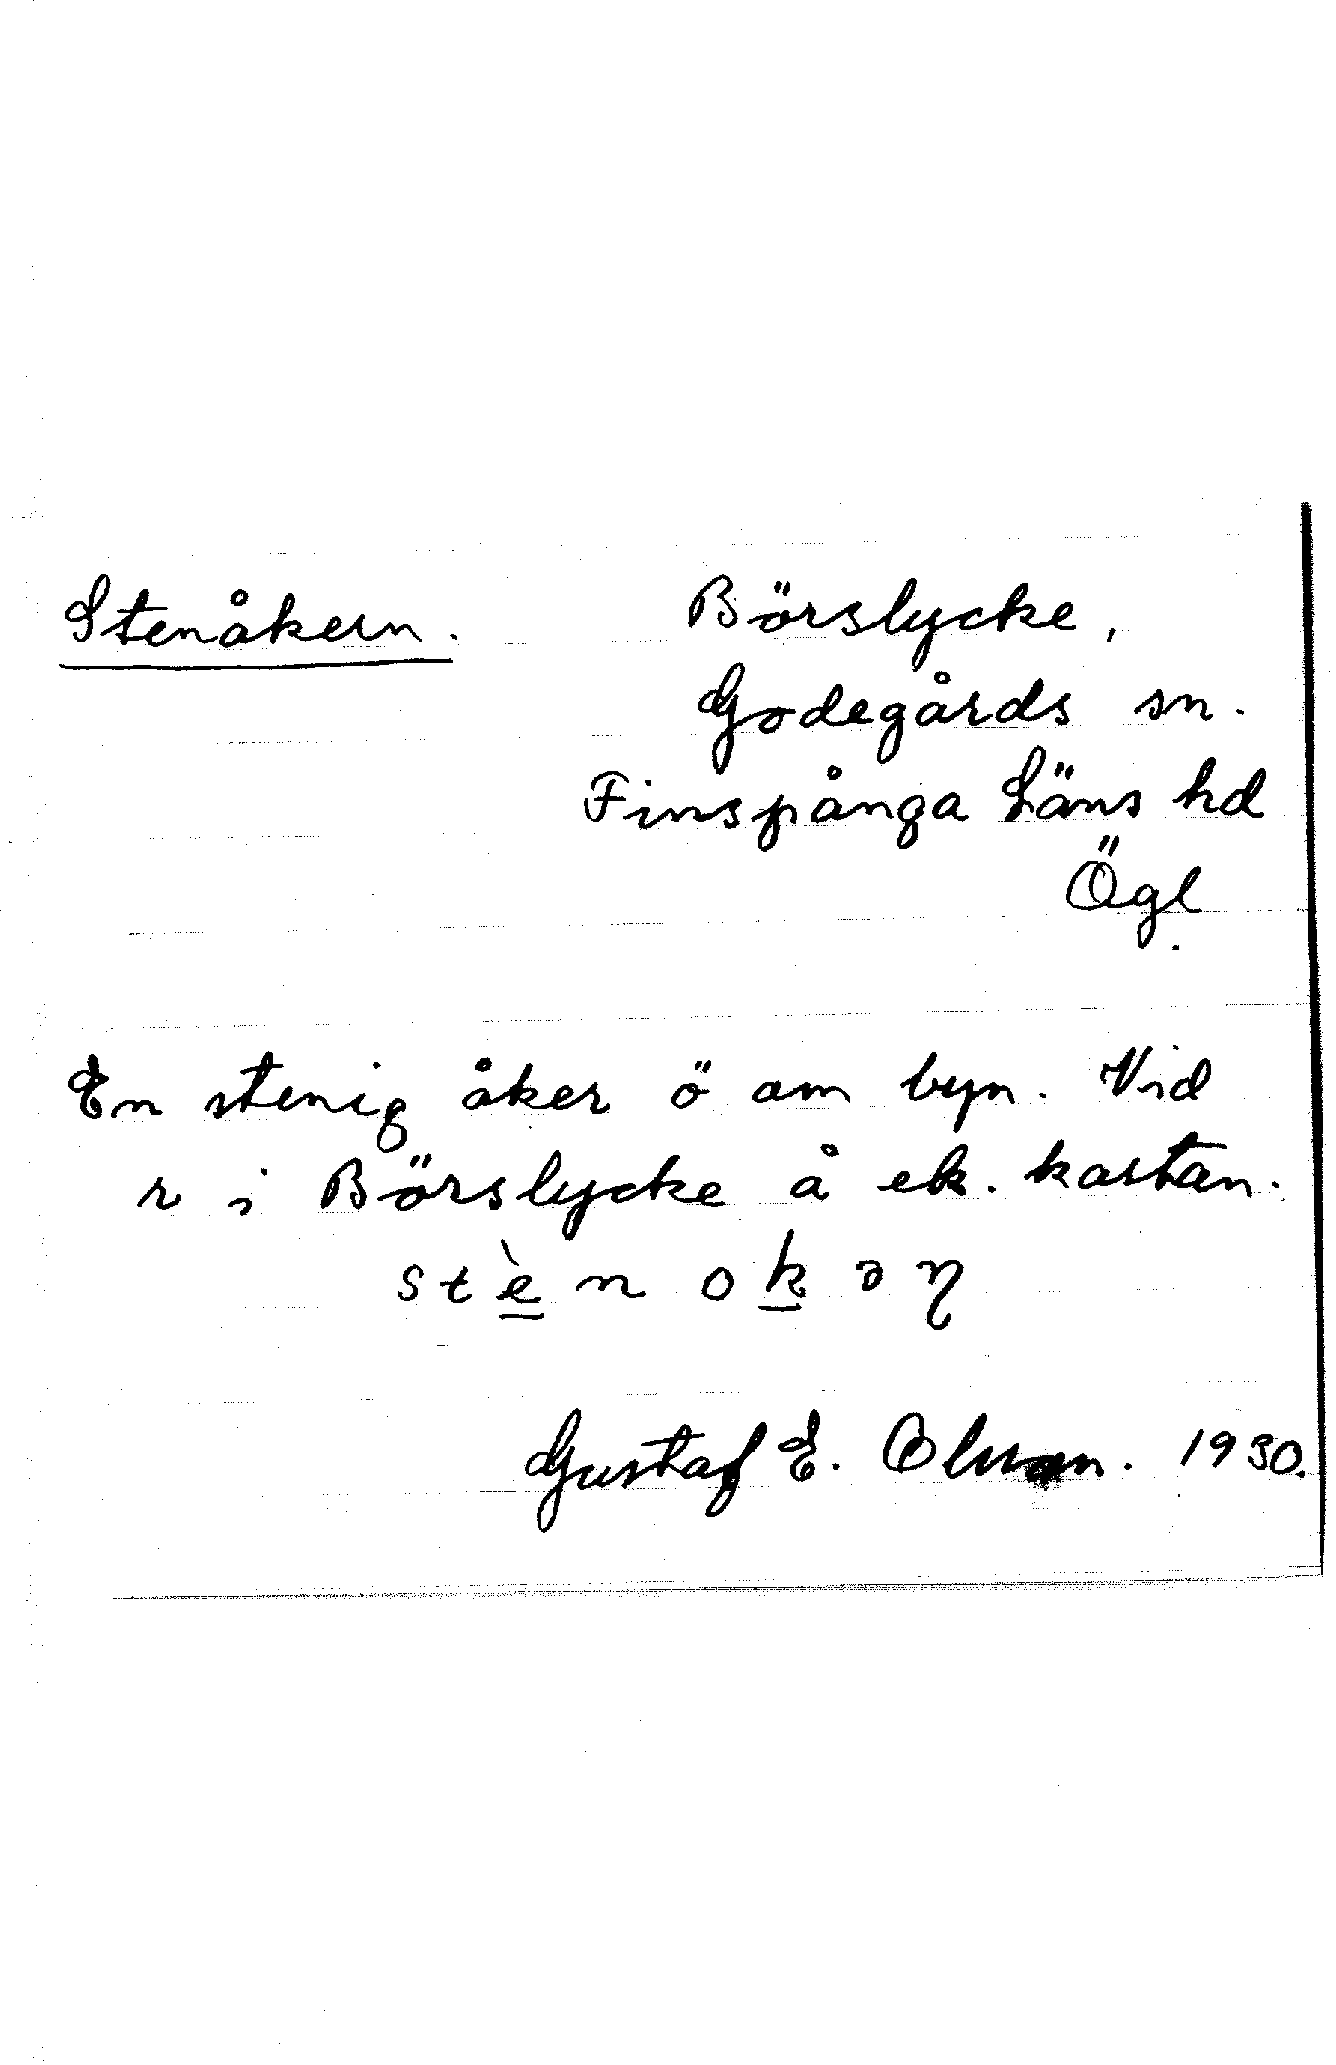 Stenåkern.
Börslycke,
Godegårds sn.
Finspånga Läns hd
Ögl.
En stenig åker ö om byn. Vid
r i Börslycke å ek. kartan.
stè̲n ok̲əη
Gustaf E. Olsson. 1930.